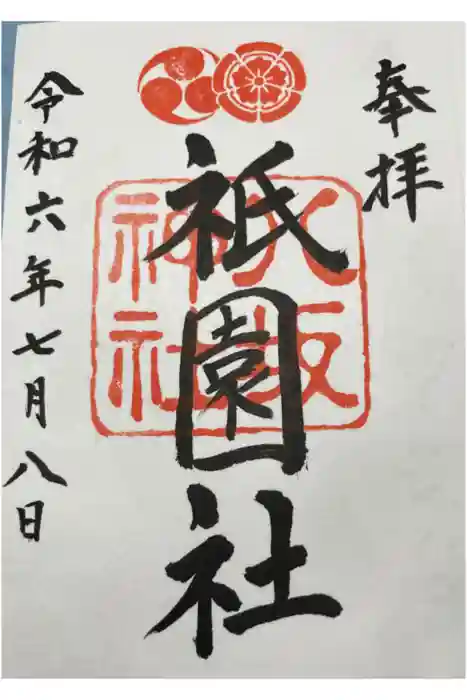 奉拝
祇園社
八坂
神社
令和六年七月八日